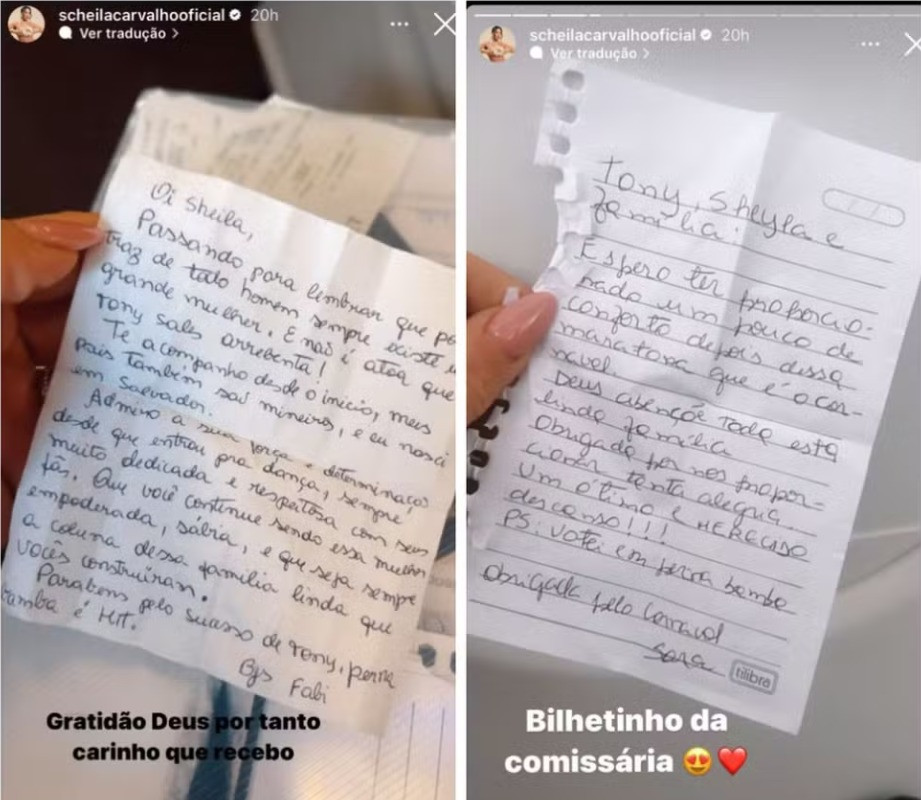 scheilacarvalhooficial 20h
Ver tradução >
Oi Sheila,
Passando para lembrar que po
traz de todo homem sempre existe u
grande mulher. E não é atoa que
Tony Sales arrebenta!
Te acompanho desde o início, meus
pais também são mineiros, e eu nasci
em Salvador.
Admiro a sua força e determinação
desde que entrou pra dança, sempre
muito dedicada e respeitosa com seus
fãs. Que você continue sendo essa mulher
empoderada, sábia, e que seja sempre
a coluna dessa família linda que
vocês construíram.
Parabens pelo sucesso de Tony, perna
bamba é Hit.
Bjs Fabi
Gratidão Deus por tanto
carinho que recebo
scheilacarvalhooficial 20h
Ver tradução >
Tony, Sheyla e
família:
Espero ter proporcio-
nado um pouco de
conforto depois dessa
maratona que é o car-
naval
Deus abençõe toda esta
linda família
Obrigada por nos propor-
cionar tanta alegria.
Um ótimo e MERECIDO
descanso!!!
PS: Votei em perna bamba
Obrigada pelo Carnaval
Sara
tilibra
Bilhetinho da
comissária 😍❤️